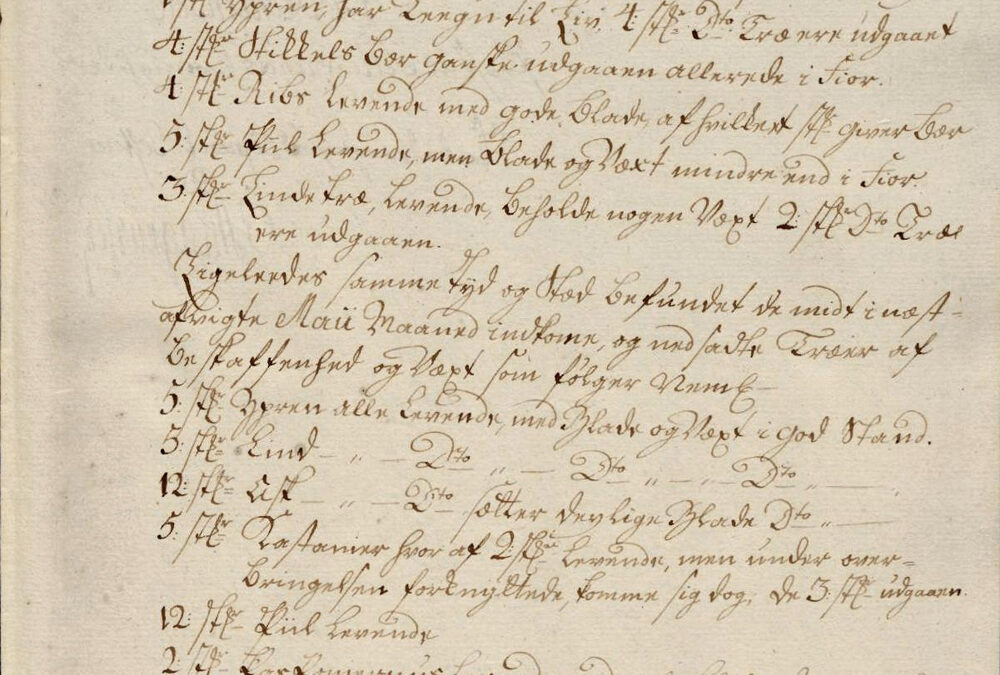 Ypren, har Leegn til Liv, 4 stk: Dto Træ ere udgaaet
4: stkr Stikkels Bær ganske udgaaen allerede i Fior.
4: stkr Ribs Levende med gode Blade, af hvilket stk: giver Bær
5: stkr Piil Levende, men Blade og Væxt mindre end i Fior.
3: stkr Lindetræ, Levende, beholde nogen Væxt 2: stkr Dto Træe
ere udgaaen.
Ligeleedes samme tyd og Stæd befundet de midt i næst-
afvigte Maii Maaned indkome, og nedsadte Træer af
Beskaffenhed og Væxt som følger Neml
5: stkr Ypren alle Levende, med Blade og Væxt i god Stand.
5: stkr Lind — „ — Dto „ — Dto „ — „ — Dto „ —
12: stkr Ask — „ — Dito sætter deylige Blade Dto „ —
5: stkr Kastanier hvor af 2: stkr Levende, men under over=
bringelsen forknyttede, komme sig dog, de 3: stkr udgaaen.
12: stkr Piil Levende
2: stkr